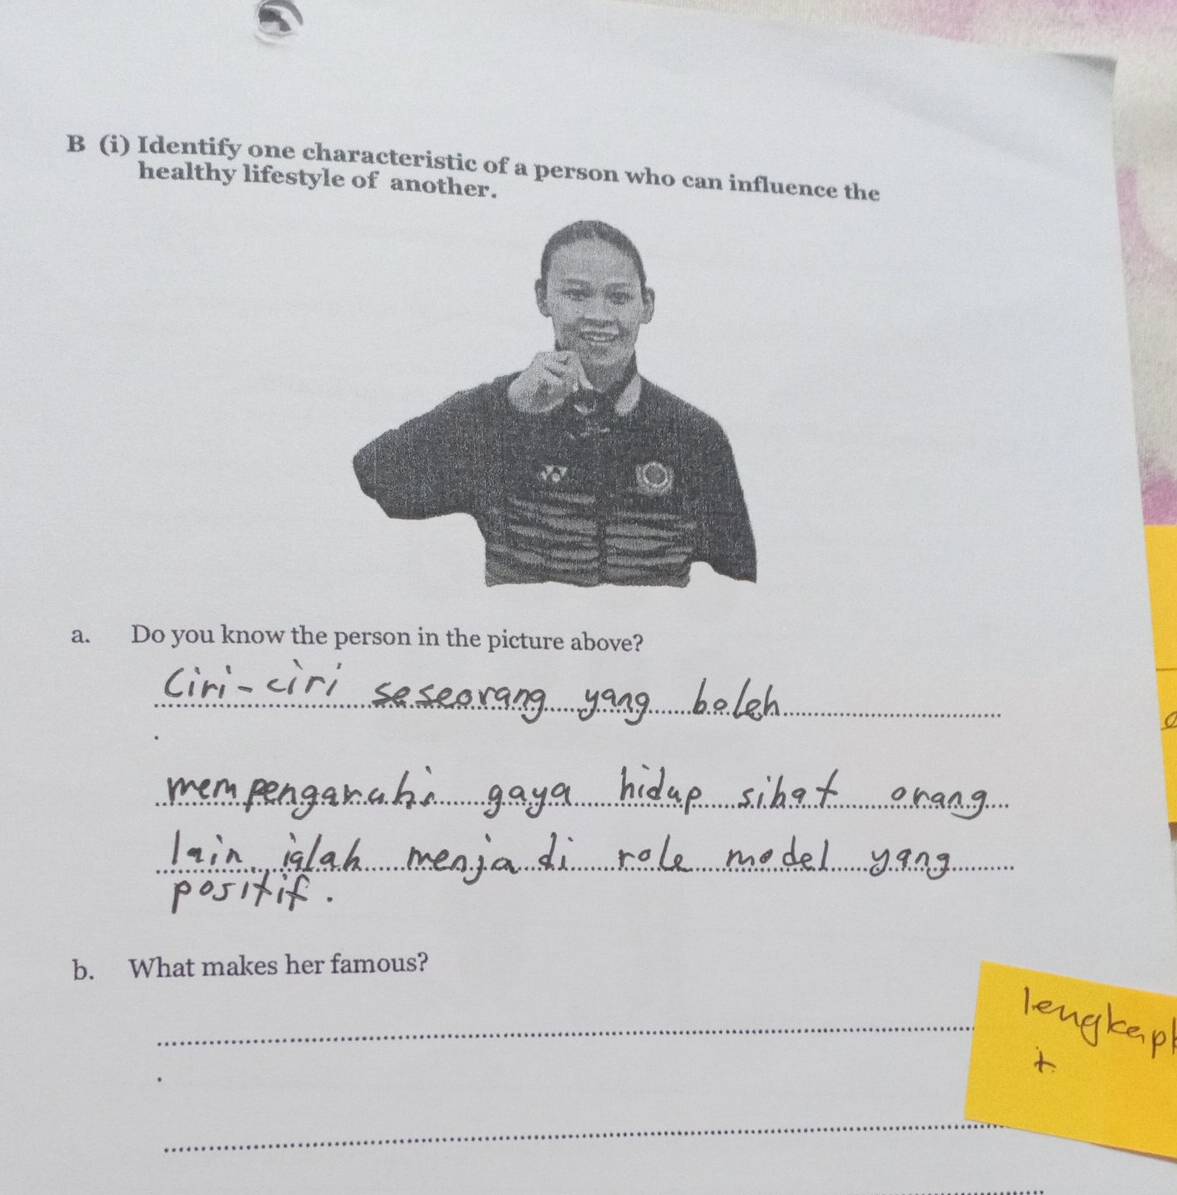 B (i) Identify one characteristic of a person who can influence the
healthy lifestyle of another.
a. Do you know the person in the picture above?
Ciri-ciri seseorang yang boleh
mempengaruhi gaya hidup sihat orang
lain ialah menjadi role model yang
positif.
b. What makes her famous?
lengkapk